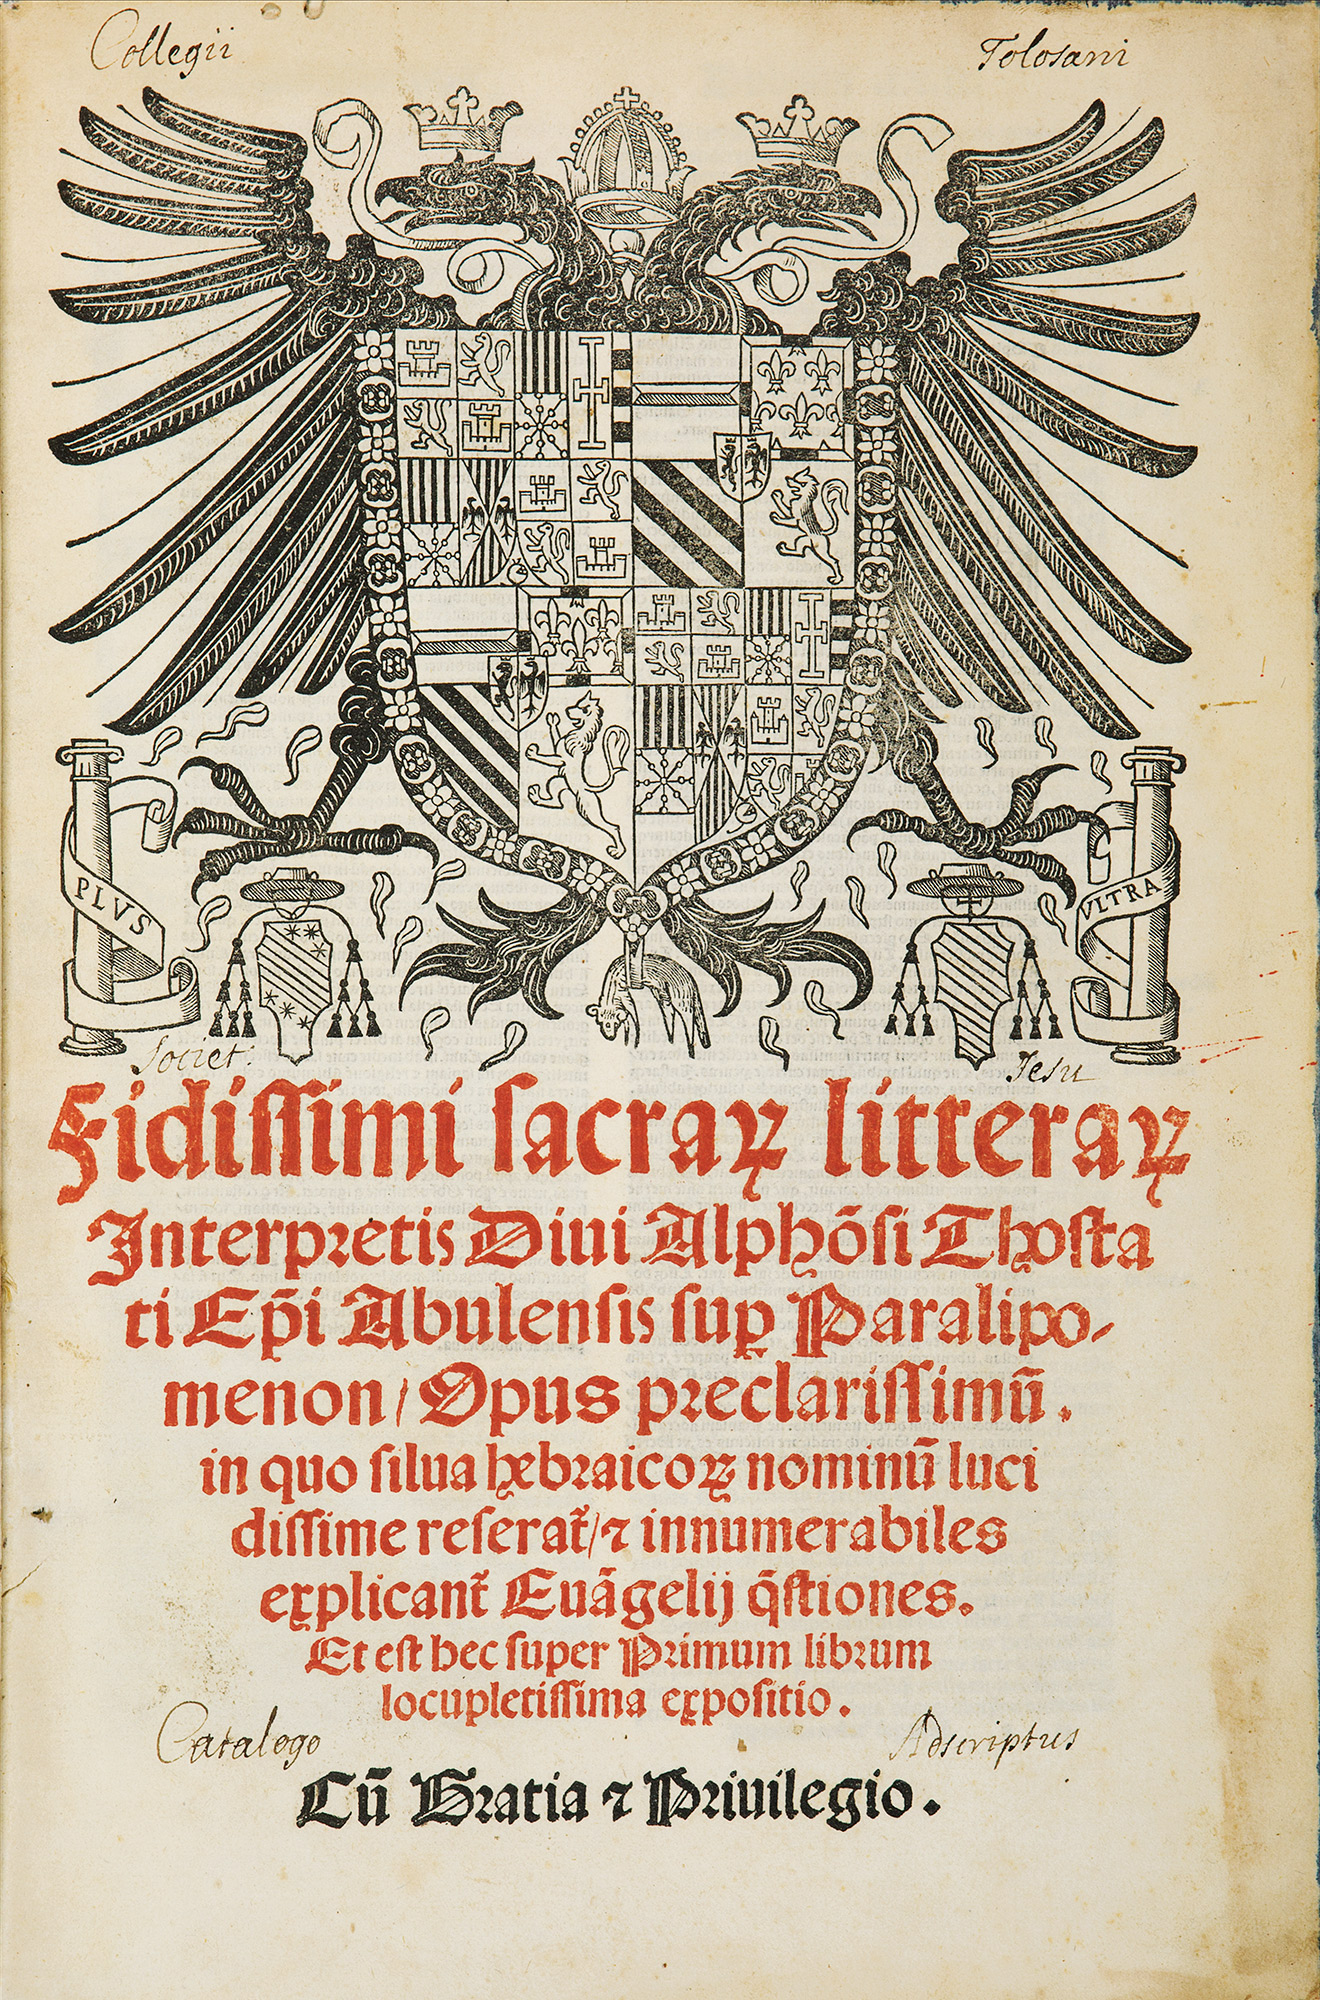 Collegii Tolosani
PLVS VLTRA
Societ: Jesu
Fidissimi sacraꝝ litteraꝝ
Interpretis Diui Alphōsi Thosta
ti Ep̄i Abulensis suꝑ Paralipo-
menon / Opus preclarissimū.
in quo silua hebraicoꝝ nominū luci
dissime reserat᷑ / ⁊ innumerabiles
explicant᷑ Euāgelij q̄stiones.
Et est hec super Primum librum
locupletissima expositio.
Catalogo Adscriptus
Cū Gratia ⁊ Priuilegio.